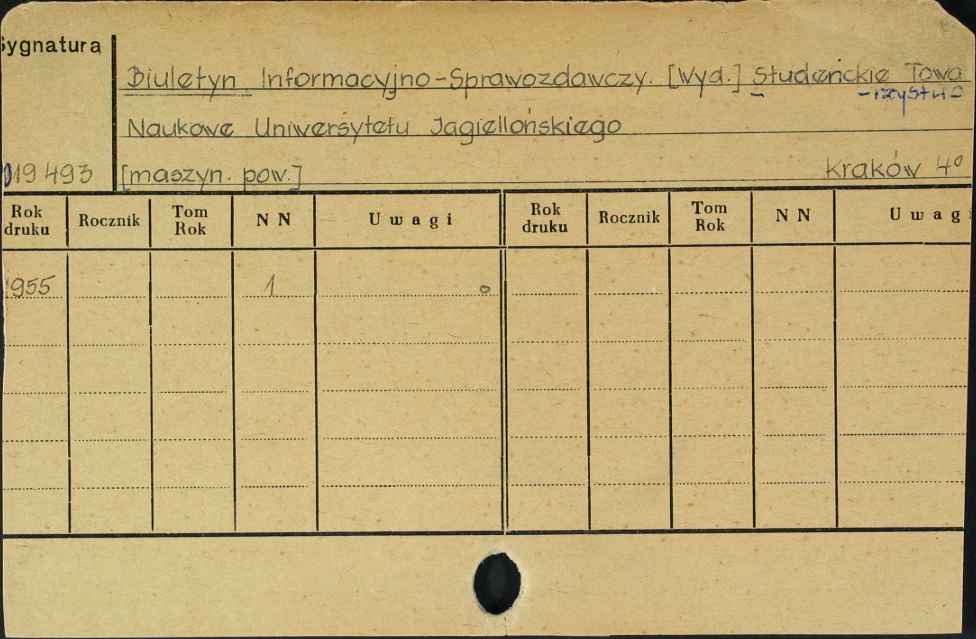 Sygnatura
Biuletyn Informacyjno-Sprawozdawczy. [Wyd.] Studenckie Towa
-rzystwo
Naukowe Uniwersytetu Jagiellońskiego
19493 [maszyn. pow.] Kraków 4º
Rok druku Rocznik Tom Rok NN Uwagi Rok druku Rocznik Tom Rok NN Uwagi
1955 1